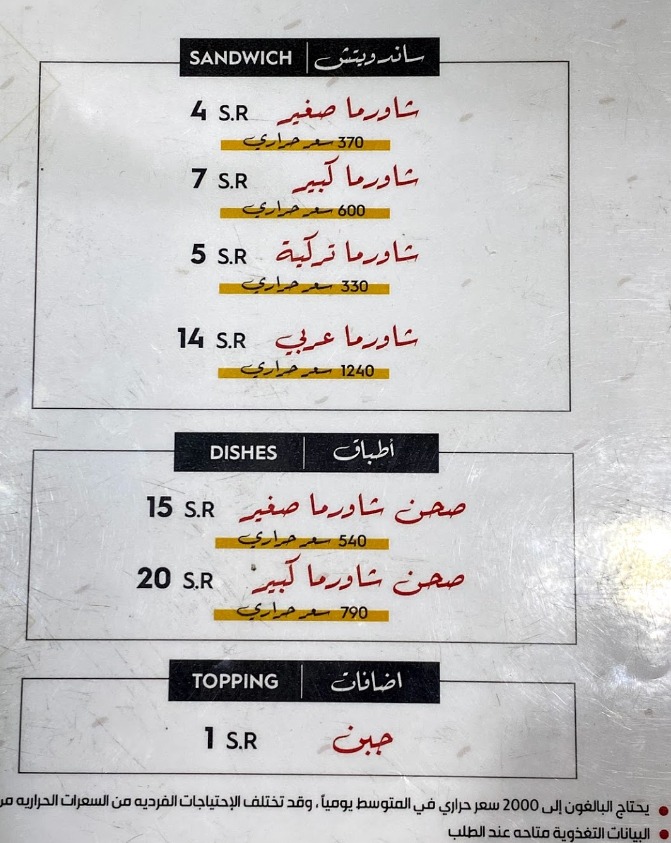 ساندويتش | SANDWICH
شاورما صغير 4 S.R
370 سعر حراري
شاورما كبير 7 S.R
600 سعر حراري
شاورما تركية 5 S.R
330 سعر حراري
شاورما عربي 14 S.R
1240 سعر حراري
أطباق | DISHES
صحن شاورما صغير 15 S.R
540 سعر حراري
صحن شاورما كبير 20 S.R
790 سعر حراري
اضافات | TOPPING
جبن 1 S.R
يحتاج البالغون إلى 2000 سعر حراري في المتوسط يومياً ، وقد تختلف الإحتياجات الفرديه من السعرات الحراريه
البيانات التغذوية متاحه عند الطلب